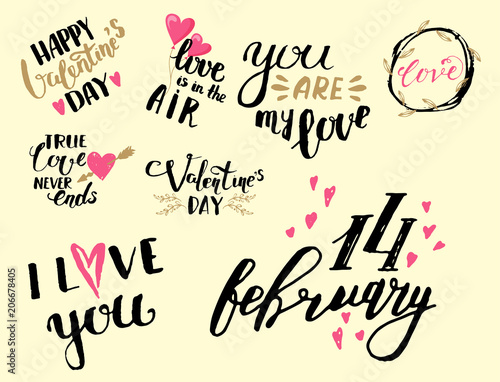 HAPPY
Valentine's
DAY
love
is in the
AIR
you
ARE
my love
love
TRUE
love
NEVER
ends
Valentine's
DAY
I LOVE
you
14
february
Adobe Stock | #206678405